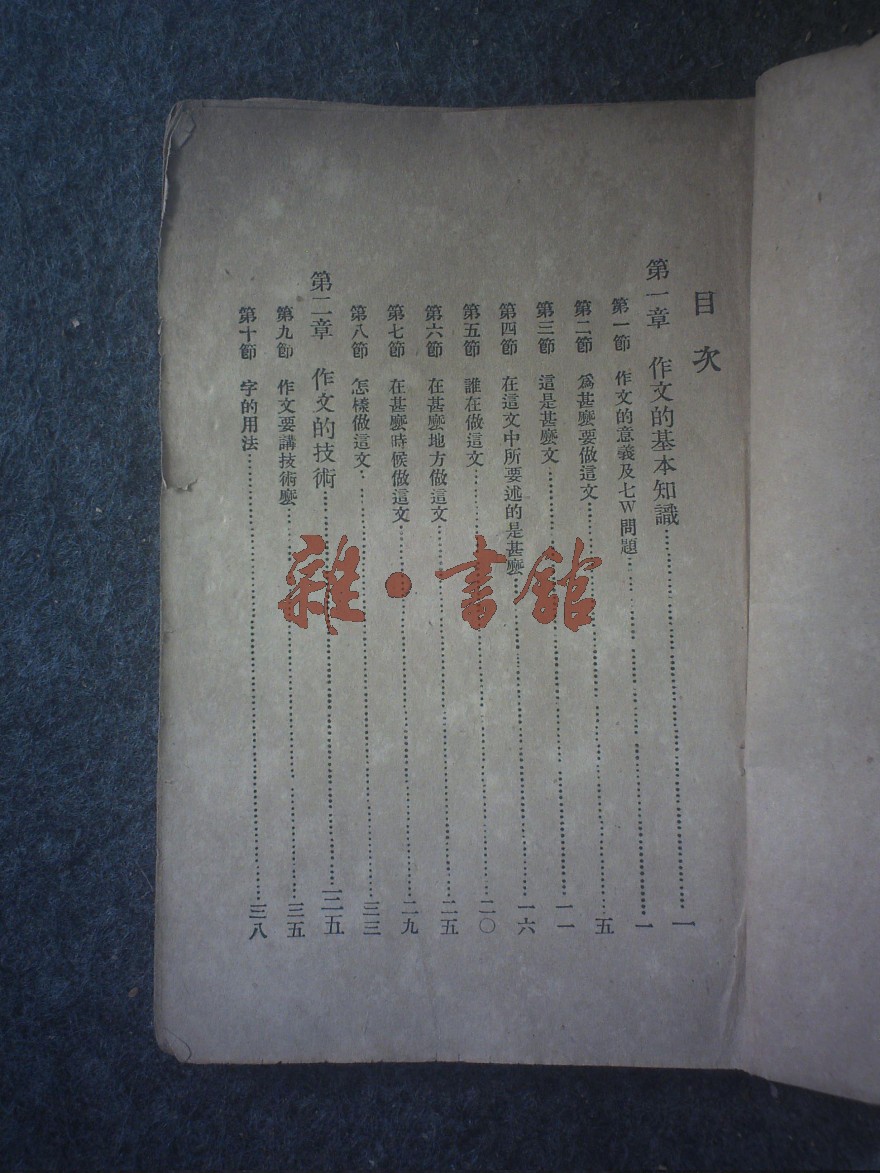 目次
第一章 作文的基本知識……一
第一節 作文的意義及七W問題……一
第二節 爲甚麼要做這文……五
第三節 這是甚麼文……一一
第四節 在這文中所要述的是甚麼……一六
第五節 誰在做這文……二〇
第六節 在甚麼地方做這文……二五
第七節 在甚麼時候做這文……二九
第八節 怎樣做這文……三三
第二章 作文的技術……三五
第九節 作文要講技術麼……三五
第十節 字的用法……三八
雜·書館